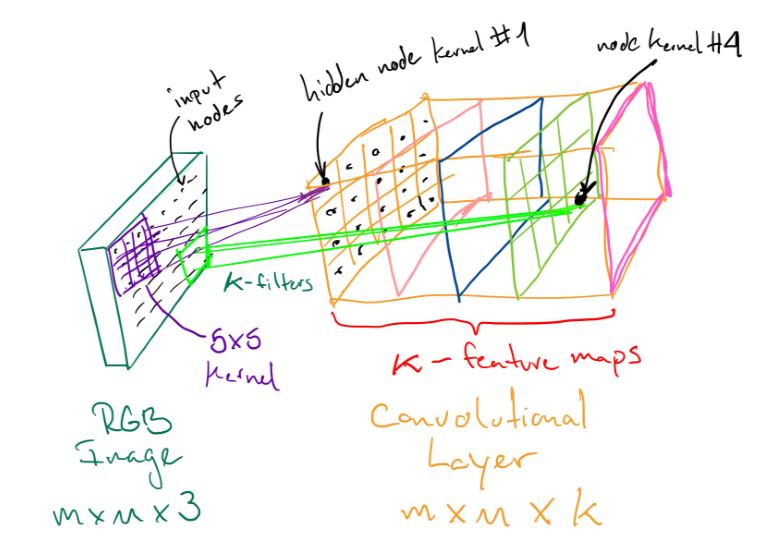 input
nodes
hidden node kernel #1
node kernel #4
K-filters
5x5
Kernel
K - feature maps
RGB
Image
m x n x 3
Convolutional
Layer
m x n x k